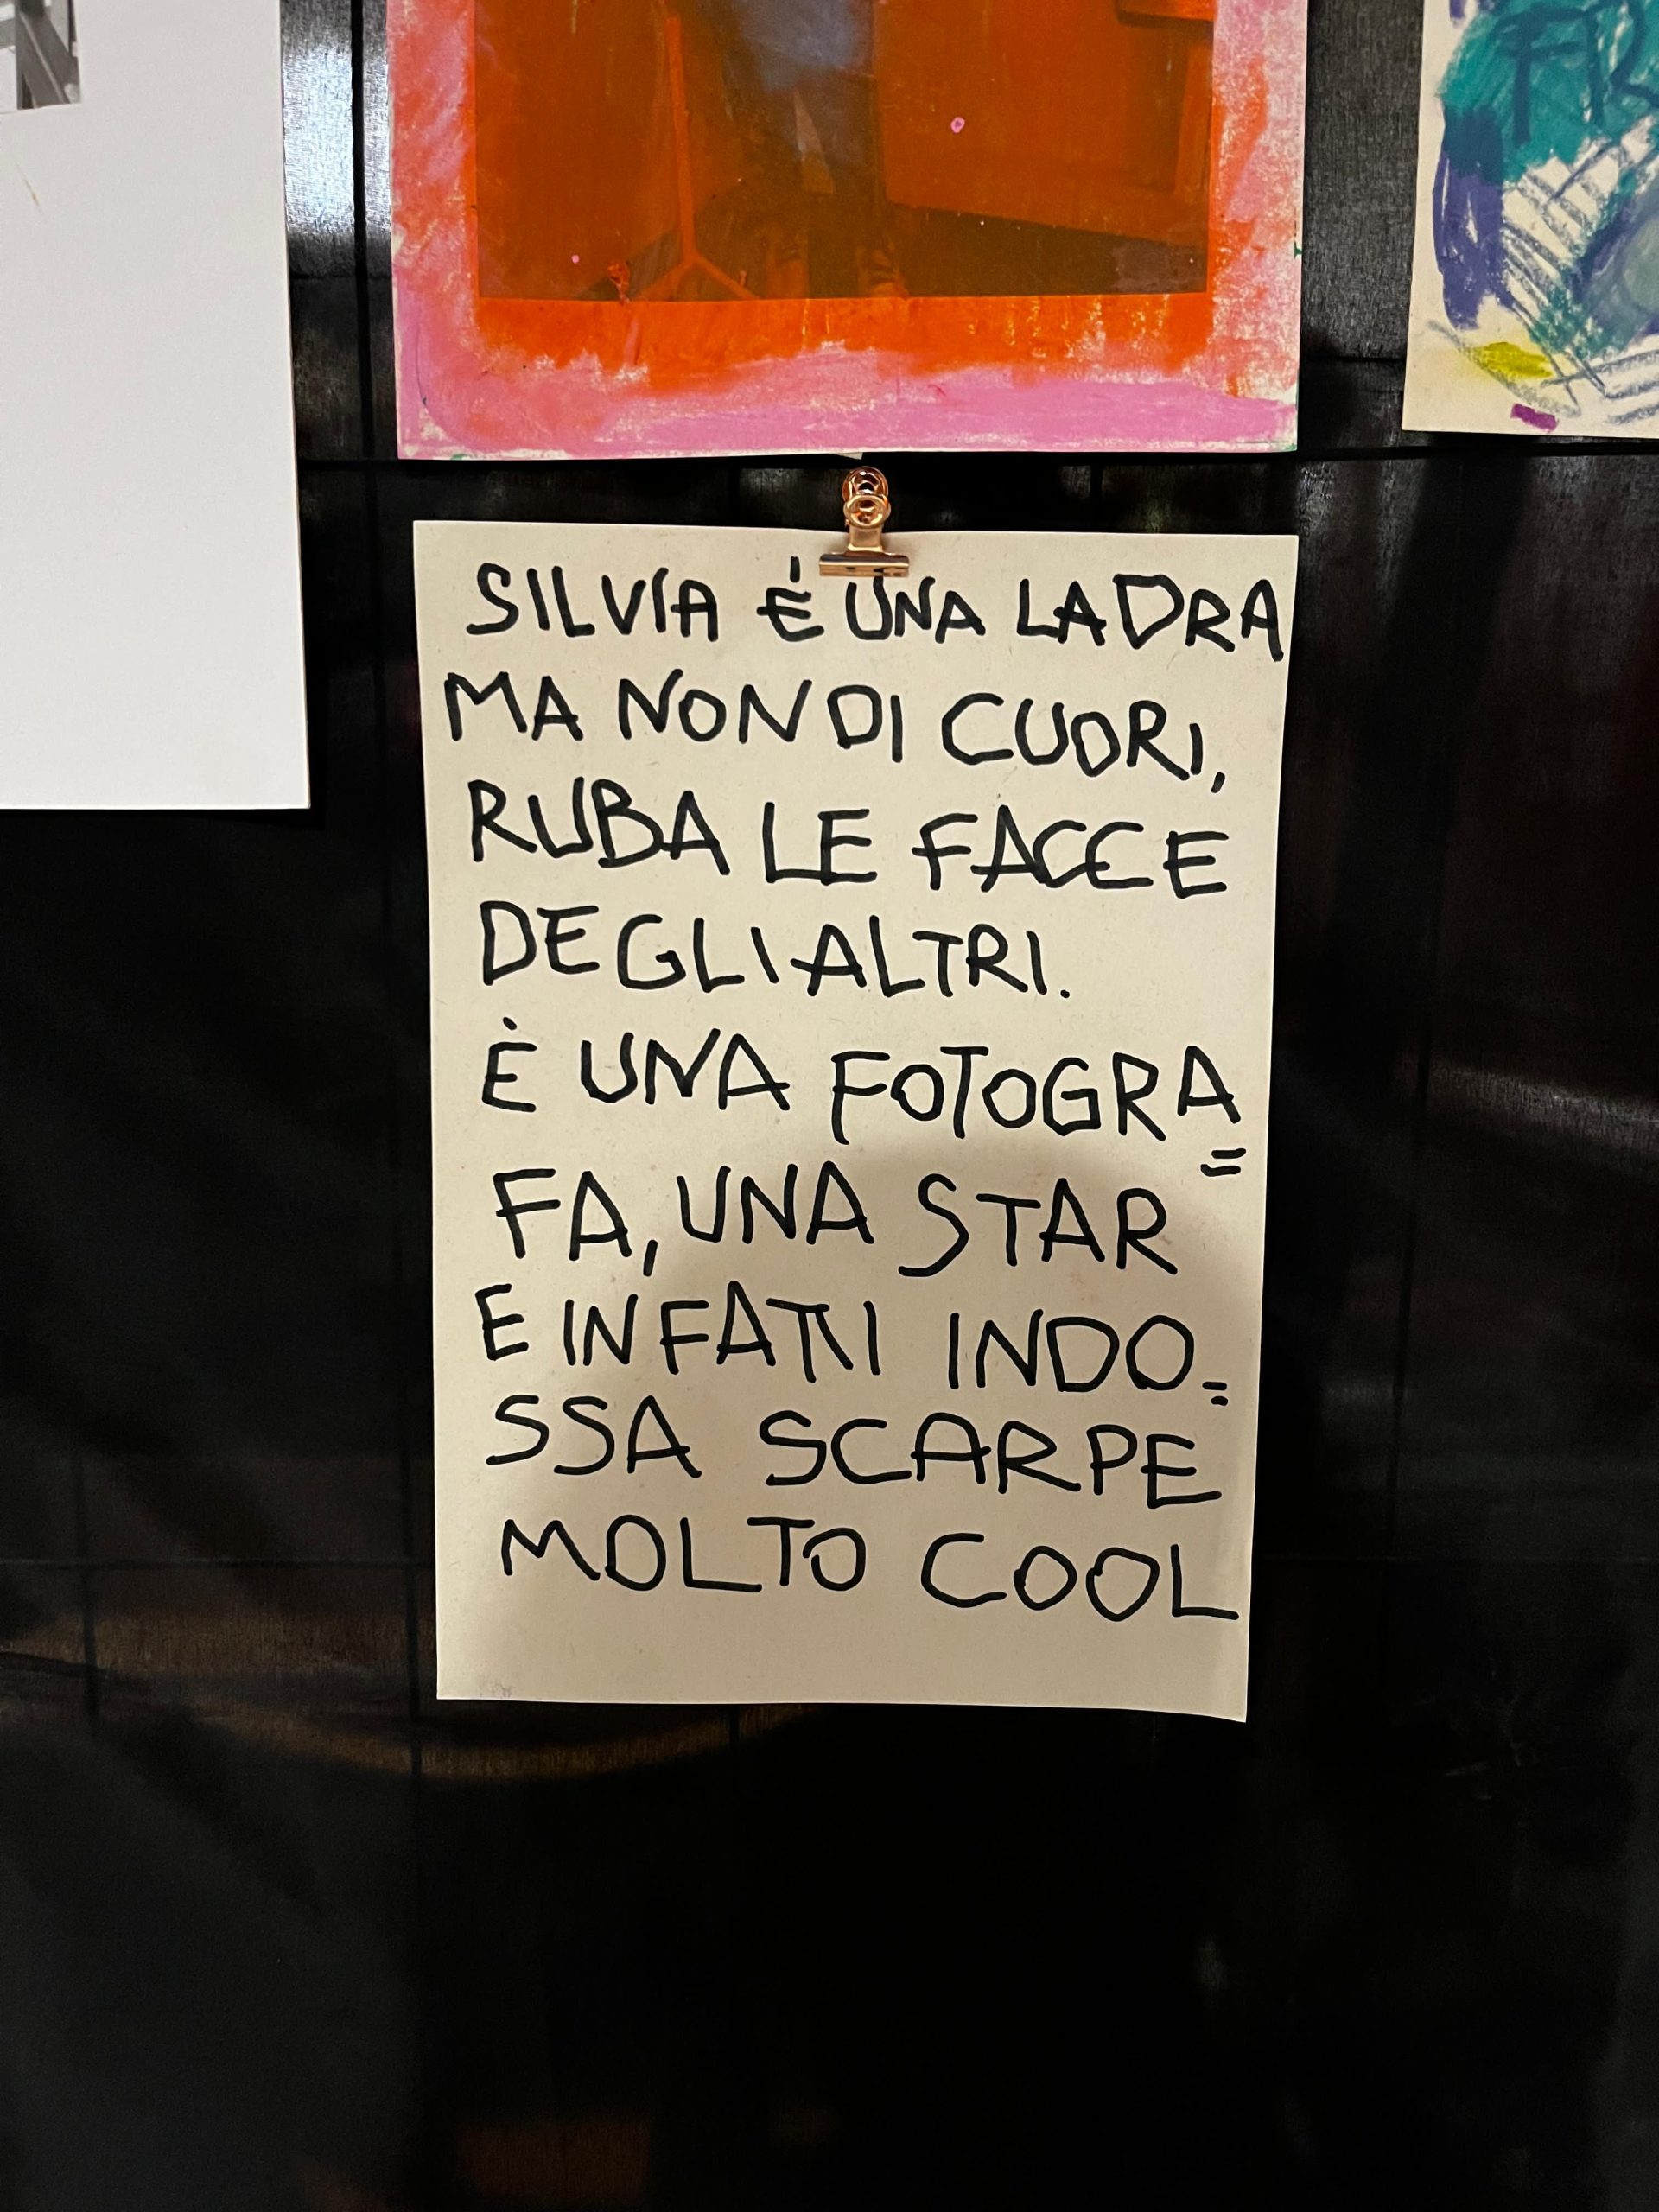 SILVIA È UNA LADRA
MA NON DI CUORI,
RUBA LE FACCE
DEGLI ALTRI.
È UNA FOTOGRA=
FA, UNA STAR
E INFATTI INDO=
SSA SCARPE
MOLTO COOL